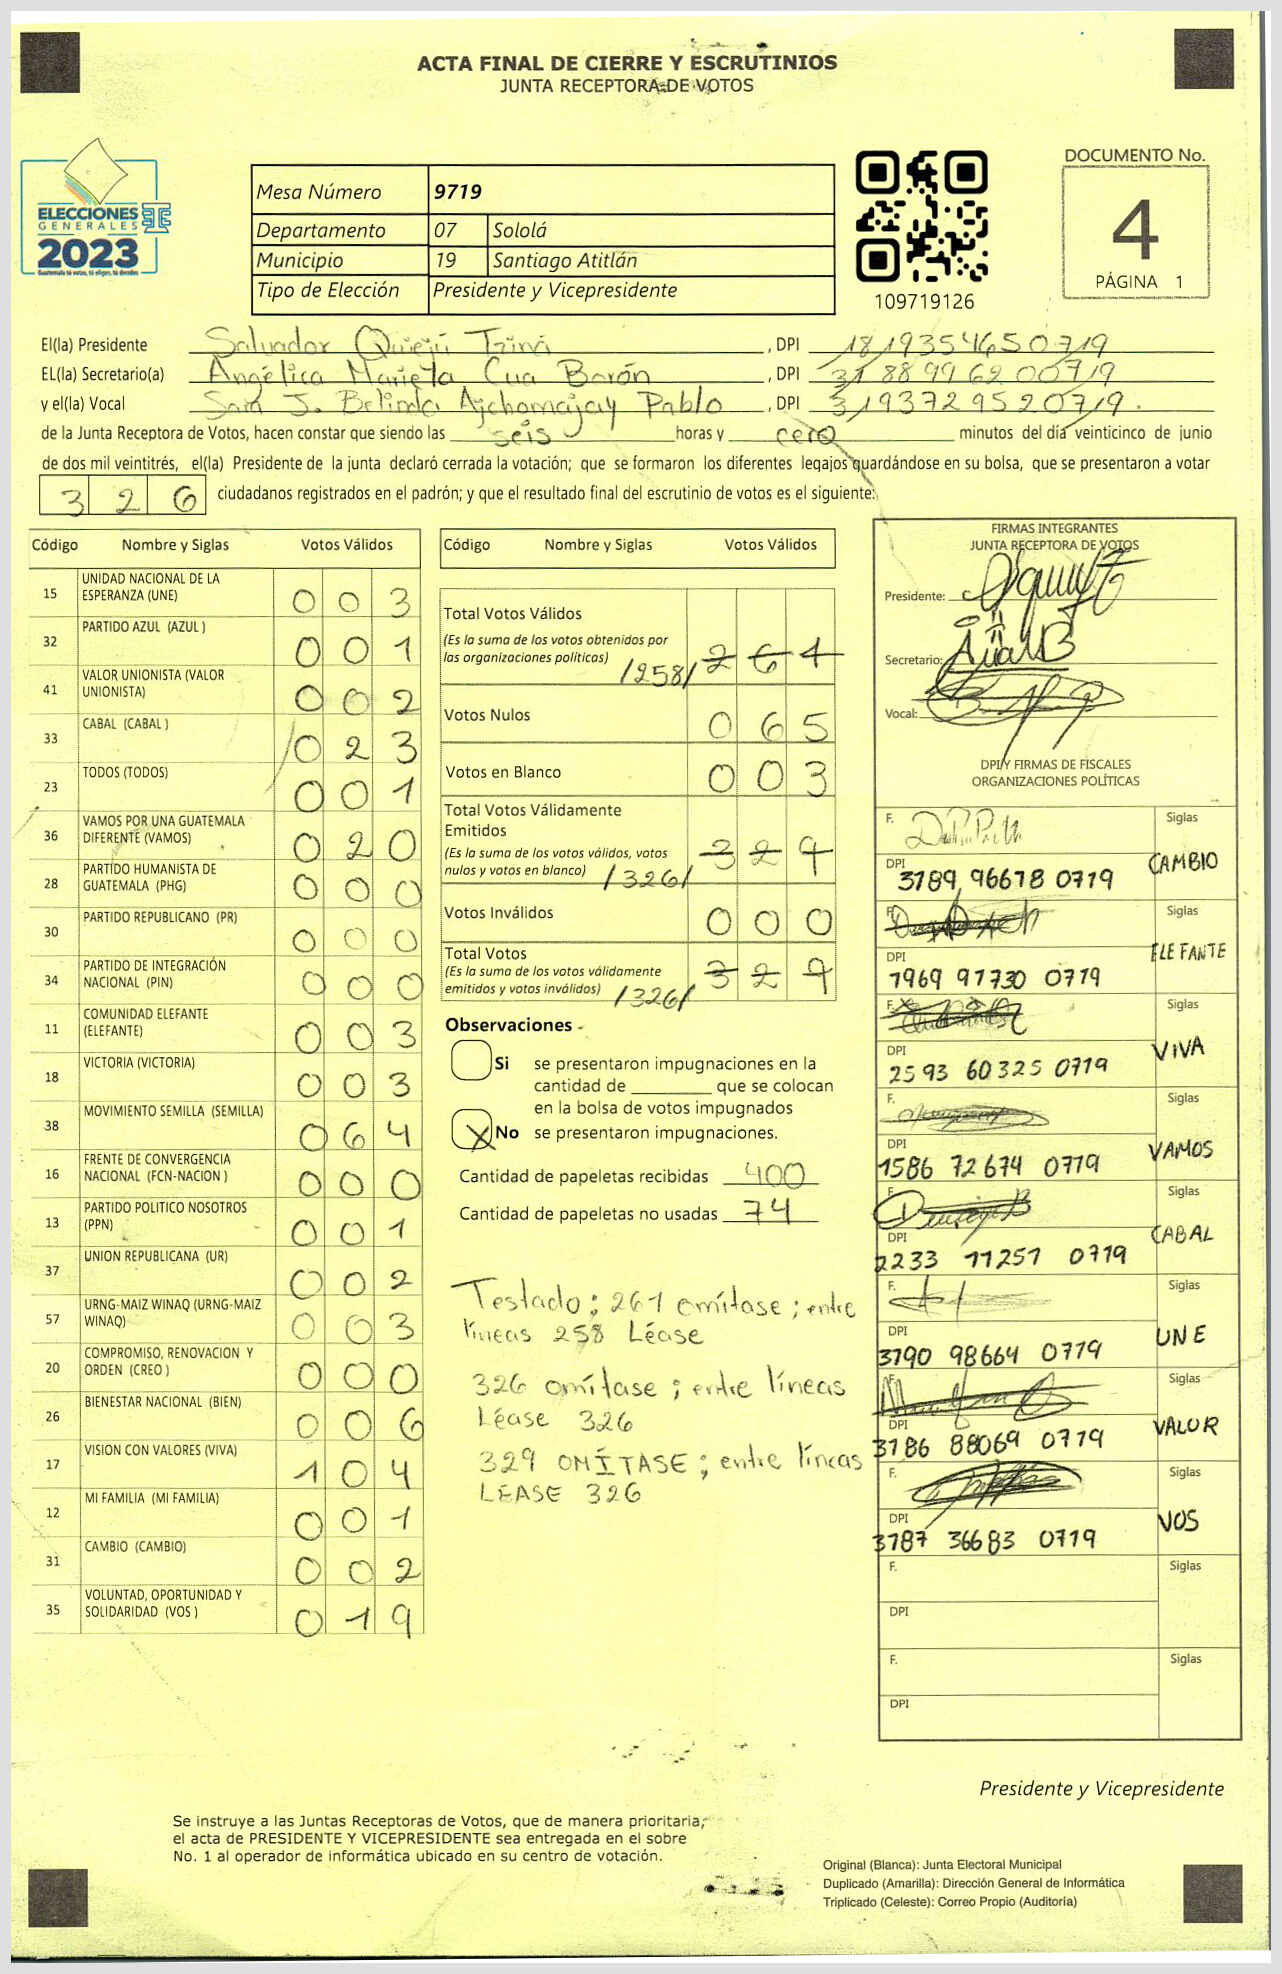 ACTA FINAL DE CIERRE Y ESCRUTINIOS
JUNTA RECEPTORA DE VOTOS
ELECCIONES
GENERALES
2023
Guatemala tú votas, tú eliges, tú decides
Mesa Número 9719
Departamento 07 Sololá
Municipio 19 Santiago Atitlán
Tipo de Elección Presidente y Vicepresidente
109719126
DOCUMENTO No.
4
PÁGINA 1
El(la) Presidente Salvador Quiejú Tziná, DPI 1819354650719
EL(la) Secretario(a) Angélica Marieta Cua Barón, DPI 3188996200719
y el(la) Vocal Sara J. Belinda Ajchomajay Pablo, DPI 3193729520719.
de la Junta Receptora de Votos, hacen constar que siendo las seis horas y cero minutos del día veinticinco de junio
de dos mil veintitrés, el(la) Presidente de la junta declaró cerrada la votación; que se formaron los diferentes legajos guardándose en su bolsa, que se presentaron a votar
3 2 6 ciudadanos registrados en el padrón; y que el resultado final del escrutinio de votos es el siguiente:
Código Nombre y Siglas Votos Válidos
15 UNIDAD NACIONAL DE LA
ESPERANZA (UNE) 0 0 3
32 PARTIDO AZUL (AZUL ) 0 0 1
41 VALOR UNIONISTA (VALOR
UNIONISTA) 0 0 2
33 CABAL (CABAL ) 0 2 3
23 TODOS (TODOS) 0 0 1
36 VAMOS POR UNA GUATEMALA
DIFERENTE (VAMOS) 0 2 0
28 PARTIDO HUMANISTA DE
GUATEMALA (PHG) 0 0 0
30 PARTIDO REPUBLICANO (PR) 0 0 0
34 PARTIDO DE INTEGRACIÓN
NACIONAL (PIN) 0 0 0
11 COMUNIDAD ELEFANTE
(ELEFANTE) 0 0 3
18 VICTORIA (VICTORIA) 0 0 3
38 MOVIMIENTO SEMILLA (SEMILLA) 0 6 4
16 FRENTE DE CONVERGENCIA
NACIONAL (FCN-NACION ) 0 0 0
13 PARTIDO POLITICO NOSOTROS
(PPN) 0 0 1
37 UNION REPUBLICANA (UR) 0 0 2
57 URNG-MAIZ WINAQ (URNG-MAIZ
WINAQ) 0 0 3
20 COMPROMISO, RENOVACION Y
ORDEN (CREO ) 0 0 0
26 BIENESTAR NACIONAL (BIEN) 0 0 6
17 VISION CON VALORES (VIVA) 1 0 4
12 MI FAMILIA (MI FAMILIA) 0 0 1
31 CAMBIO (CAMBIO) 0 0 2
35 VOLUNTAD, OPORTUNIDAD Y
SOLIDARIDAD (VOS ) 0 1 9
Código Nombre y Siglas Votos Válidos
Total Votos Válidos
(Es la suma de los votos obtenidos por
las organizaciones políticas) /258/ 2 6 1
Votos Nulos 0 6 5
Votos en Blanco 0 0 3
Total Votos Válidamente
Emitidos
(Es la suma de los votos válidos, votos
nulos y votos en blanco) /326/ 3 2 9
Votos Inválidos 0 0 0
Total Votos
(Es la suma de los votos válidamente
emitidos y votos inválidos) /326/ 3 2 9
Observaciones
Si se presentaron impugnaciones en la
cantidad de ________ que se colocan
en la bolsa de votos impugnados
X No se presentaron impugnaciones.
Cantidad de papeletas recibidas 400
Cantidad de papeletas no usadas 74
Testado; 261 omítase; entre
líneas 258 Léase
326 omítase; entre líneas
Léase 326
329 OMÍTASE; entre líneas
LEASE 326
FIRMAS INTEGRANTES
JUNTA RECEPTORA DE VOTOS
Presidente:
Secretario:
Vocal:
DPI Y FIRMAS DE FISCALES
ORGANIZACIONES POLÍTICAS
F. Siglas
DPI 3789 96678 0719 CAMBIO
F. Siglas
DPI 1969 91730 0719 ELEFANTE
F. Siglas
DPI 2593 60325 0719 VIVA
F. Siglas
DPI 1586 72674 0719 VAMOS
F. Siglas
DPI 2233 11251 0719 CABAL
F. Siglas
DPI 3190 98664 0719 UNE
F. Siglas
DPI 3186 88069 0719 VALOR
F. Siglas
DPI 3187 36683 0719 VOS
F. Siglas
DPI
F. Siglas
DPI
Presidente y Vicepresidente
Se instruye a las Juntas Receptoras de Votos, que de manera prioritaria,
el acta de PRESIDENTE Y VICEPRESIDENTE sea entregada en el sobre
No. 1 al operador de informática ubicado en su centro de votación.
Original (Blanca): Junta Electoral Municipal
Duplicado (Amarilla): Dirección General de Informática
Triplicado (Celeste): Correo Propio (Auditoría)